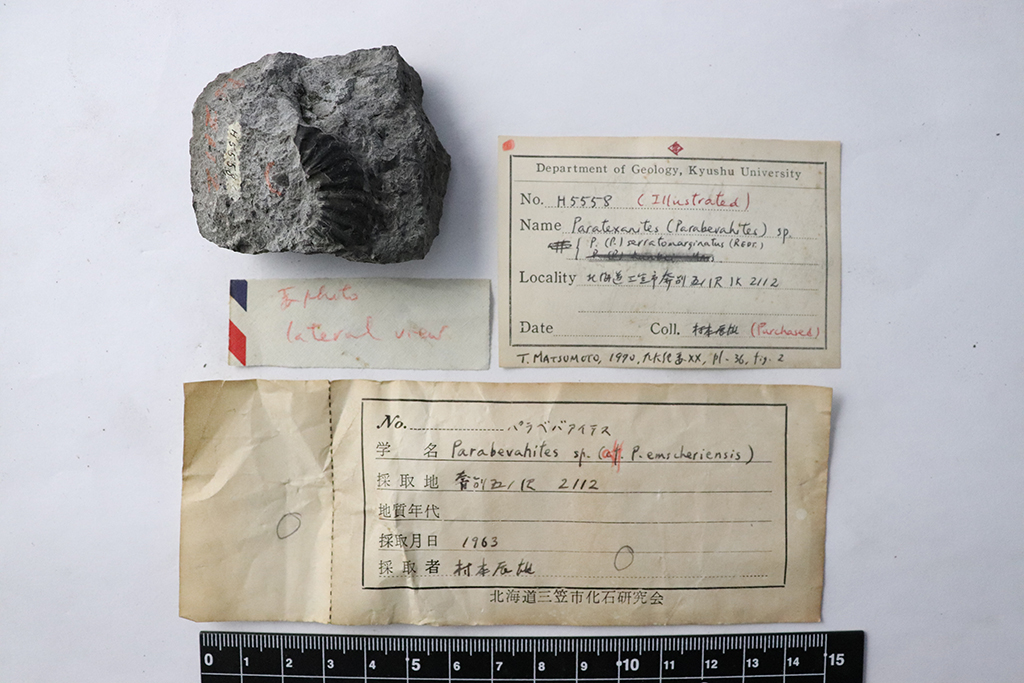 H5558
Department of Geology, Kyushu University
No. H5558 (Illustrated)
Name Paratexanites (Parabevahites) sp.
P. (P.) serratomarginatus (REDT.)
Locality 北海道三笠市奔別五ノ沢 IK 2112
Date Coll. 村本辰雄 (Purchased)
T. MATSUMOTO, 1970, 九大紀要XX, pl. 36, fig. 2
要photo
lateral view
No. パラベバアイテス
学名 Parabevahites sp. (aff. P. emscheriensis)
採取地 奔別五ノ沢 2112
地質年代
採取月日 1963
採取者 村本辰雄
北海道三笠市化石研究会
0 1 2 3 4 5 6 7 8 9 10 11 12 13 14 15